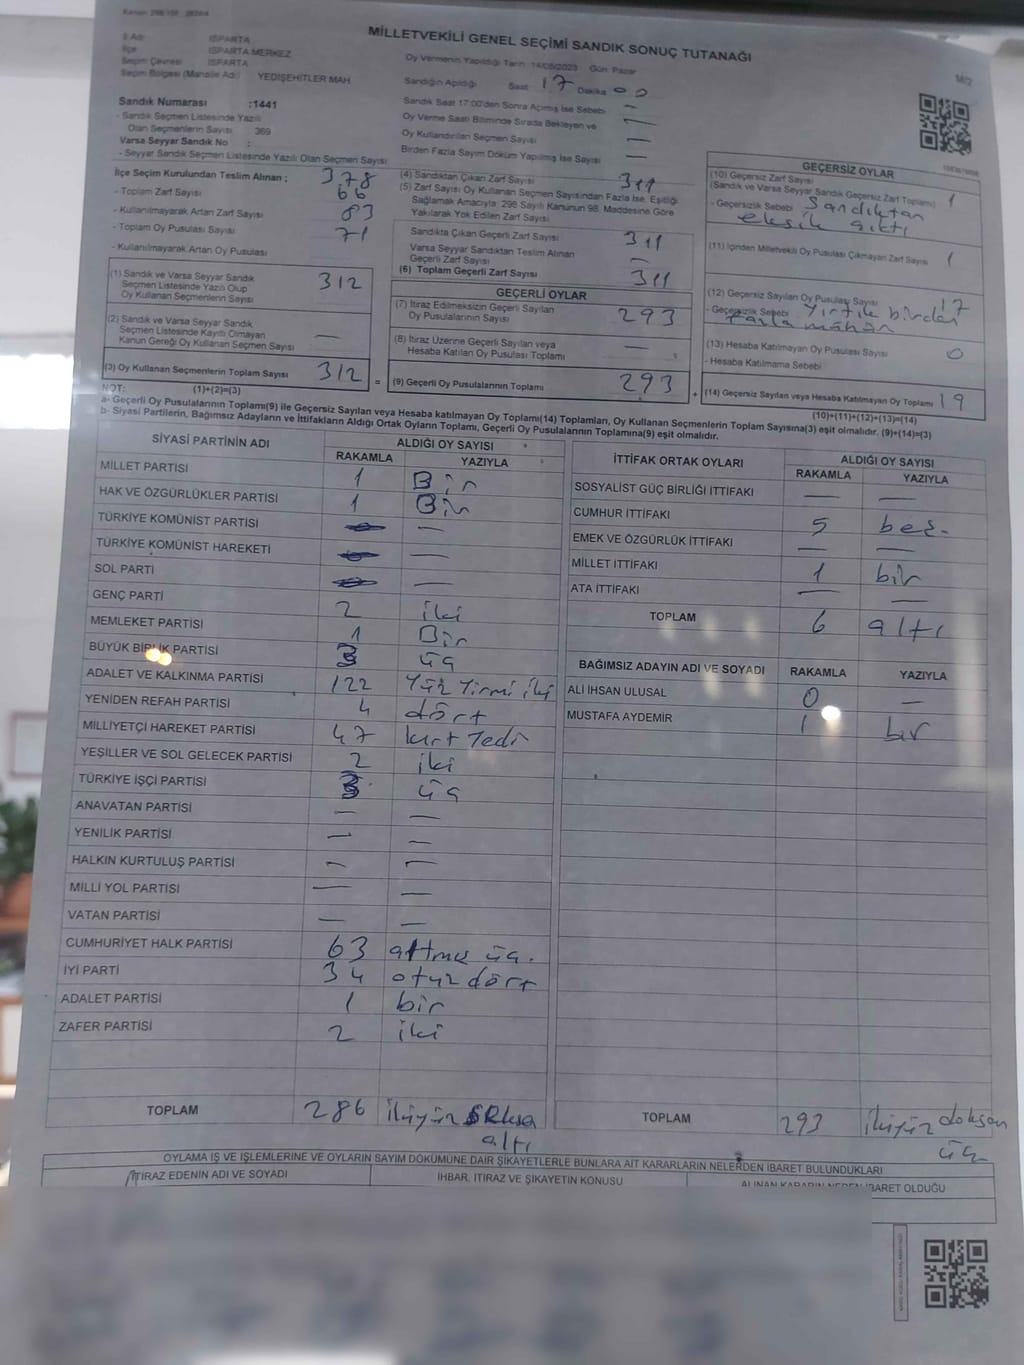 MİLLETVEKİLİ GENEL SEÇİMİ SANDIK SONUÇ TUTANAĞI
M/2
İl Adı ISPARTA
İlçe ISPARTA MERKEZ
Seçim Çevresi ISPARTA
Seçim Bölgesi (Mahalle Adı) YEDİŞEHİTLER MAH
Sandık Numarası :1441
- Sandık Seçmen Listesinde Yazılı
Olan Seçmenlerin Sayısı 369
Varsa Seyyar Sandık No :
- Seyyar Sandık Seçmen Listesinde Yazılı Olan Seçmen Sayısı
Oy Vermenin Yapıldığı Tarih: 14/05/2023 Gün: Pazar
Sandığın Açıldığı Saat 17 Dakika 00
Sandık Saat 17:00'den Sonra Açılmış İse Sebebi —
Oy Verme Saati Bitiminde Sırada Bekleyen ve
Oy Kullandırılan Seçmen Sayısı —
Birden Fazla Sayım Döküm Yapılmış İse Sayısı —
İlçe Seçim Kurulundan Teslim Alınan ;
- Toplam Zarf Sayısı 378
- Kullanılmayarak Artan Zarf Sayısı 66
- Toplam Oy Pusulası Sayısı
- Kullanılmayarak Artan Oy Pusulası 71
(1) Sandık ve Varsa Seyyar Sandık
Seçmen Listesinde Yazılı Olup
Oy Kullanan Seçmenlerin Sayısı 312
(2) Sandık ve Varsa Seyyar Sandık
Seçmen Listesinde Kayıtlı Olmayan
Kanun Gereği Oy Kullanan Seçmen Sayısı —
(3) Oy Kullanan Seçmenlerin Toplam Sayısı 312 =
(4) Sandıktan Çıkan Zarf Sayısı 311
(5) Zarf Sayısı Oy Kullanan Seçmen Sayısından Fazla İse, Eşitliği
Sağlamak Amacıyla; 298 Sayılı Kanunun 98. Maddesine Göre
Yakılarak Yok Edilen Zarf Sayısı
Sandıkta Çıkan Geçerli Zarf Sayısı 311
Varsa Seyyar Sandıktan Teslim Alınan
Geçerli Zarf Sayısı —
(6) Toplam Geçerli Zarf Sayısı 311
GEÇERLİ OYLAR
(7) İtiraz Edilmeksizin Geçerli Sayılan
Oy Pusulalarının Sayısı 293
(8) İtiraz Üzerine Geçerli Sayılan veya
Hesaba Katılan Oy Pusulası Toplamı —
(9) Geçerli Oy Pusulalarının Toplamı 293 +
GEÇERSİZ OYLAR
(10) Geçersiz Zarf Sayısı
(Sandık ve Varsa Seyyar Sandık Geçersiz Zarf Toplamı) 1
- Geçersizlik Sebebi Sandıktan
eksik çıktı
(11) İçinden Milletvekili Oy Pusulası Çıkmayan Zarf Sayısı 1
(12) Geçersiz Sayılan Oy Pusulası Sayısı 17
- Geçersizlik Sebebi Yırtık birden
fazla mühür
(13) Hesaba Katılmayan Oy Pusulası Sayısı 0
- Hesaba Katılmama Sebebi
(14) Geçersiz Sayılan veya Hesaba Katılmayan Oy Toplamı 19
NOT: (1)+(2)=(3)
(10)+(11)+(12)+(13)=(14)
a- Geçerli Oy Pusulalarının Toplamı(9) ile Geçersiz Sayılan veya Hesaba katılmayan Oy Toplamı(14) Toplamları, Oy Kullanan Seçmenlerin Toplam Sayısına(3) eşit olmalıdır. (9)+(14)=(3)
b- Siyasi Partilerin, Bağımsız Adayların ve İttifakların Aldığı Ortak Oyların Toplamı, Geçerli Oy Pusulalarının Toplamına(9) eşit olmalıdır.
SİYASİ PARTİNİN ADI ALDIĞI OY SAYISI
RAKAMLA YAZIYLA
MİLLET PARTİSİ 1 Bir
HAK VE ÖZGÜRLÜKLER PARTİSİ 1 Bir
TÜRKİYE KOMÜNİST PARTİSİ —
TÜRKİYE KOMÜNİST HAREKETİ —
SOL PARTİ —
GENÇ PARTİ 2 iki
MEMLEKET PARTİSİ 1 Bir
BÜYÜK BİRLİK PARTİSİ 3 üç
ADALET VE KALKINMA PARTİSİ 122 Yüz Yirmi iki
YENİDEN REFAH PARTİSİ 4 dört
MİLLİYETÇİ HAREKET PARTİSİ 47 kırt Yedi
YEŞİLLER VE SOL GELECEK PARTİSİ 2 iki
TÜRKİYE İŞÇİ PARTİSİ 3 üç
ANAVATAN PARTİSİ — —
YENİLİK PARTİSİ — —
HALKIN KURTULUŞ PARTİSİ — —
MİLLİ YOL PARTİSİ — —
VATAN PARTİSİ — —
CUMHURİYET HALK PARTİSİ 63 altmış üç.
İYİ PARTİ 34 otuz dört
ADALET PARTİSİ 1 bir
ZAFER PARTİSİ 2 iki
TOPLAM 286 ikiyüz seksen
altı
İTTİFAK ORTAK OYLARI ALDIĞI OY SAYISI
RAKAMLA YAZIYLA
SOSYALİST GÜÇ BİRLİĞİ İTTİFAKI — —
CUMHUR İTTİFAKI 5 beş-
EMEK VE ÖZGÜRLÜK İTTİFAKI — —
MİLLET İTTİFAKI 1 bir
ATA İTTİFAKI — —
TOPLAM 6 altı
BAĞIMSIZ ADAYIN ADI VE SOYADI RAKAMLA YAZIYLA
ALİ İHSAN ULUSAL 0 —
MUSTAFA AYDEMİR 1 bir
TOPLAM 293 ikiyüz doksan
üç
OYLAMA İŞ VE İŞLEMLERİNE VE OYLARIN SAYIM DÖKÜMÜNE DAİR ŞİKAYETLERLE BUNLARA AİT KARARLARIN NELERDEN İBARET BULUNDUKLARI
İTİRAZ EDENİN ADI VE SOYADI İHBAR, İTİRAZ VE ŞİKAYETİN KONUSU ALINAN KARARIN NEDEN İBARET OLDUĞU